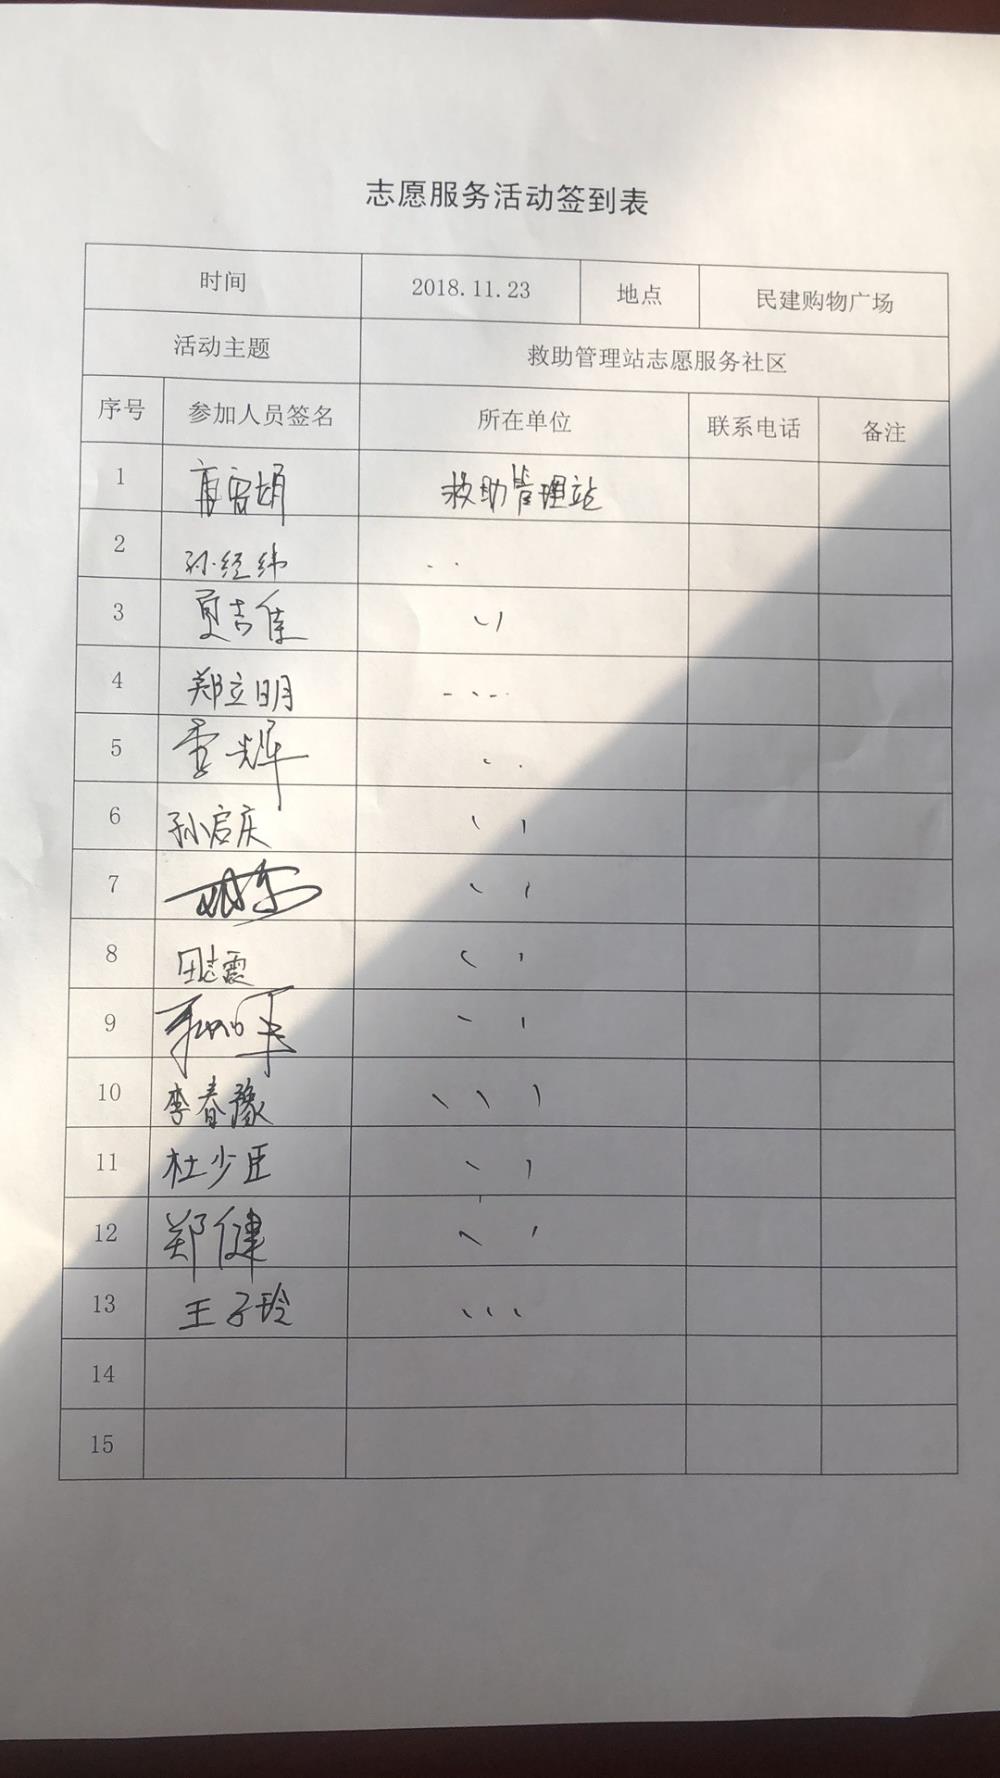 志愿服务活动签到表
时间 2018.11.23 地点 民建购物广场
活动主题 救助管理站志愿服务社区
序号 参加人员签名 所在单位 联系电话 备注
1 救助管理站
2 孙经纬 〃
3 夏吉佳 〃
4 郑立明 〃
5 光辉 〃
6 孙启庆 〃
7 〃
8 田志震 〃
9 〃
10 李春豫 〃
11 杜少臣 〃
12 郑健 〃
13 王子玲 〃
14
15